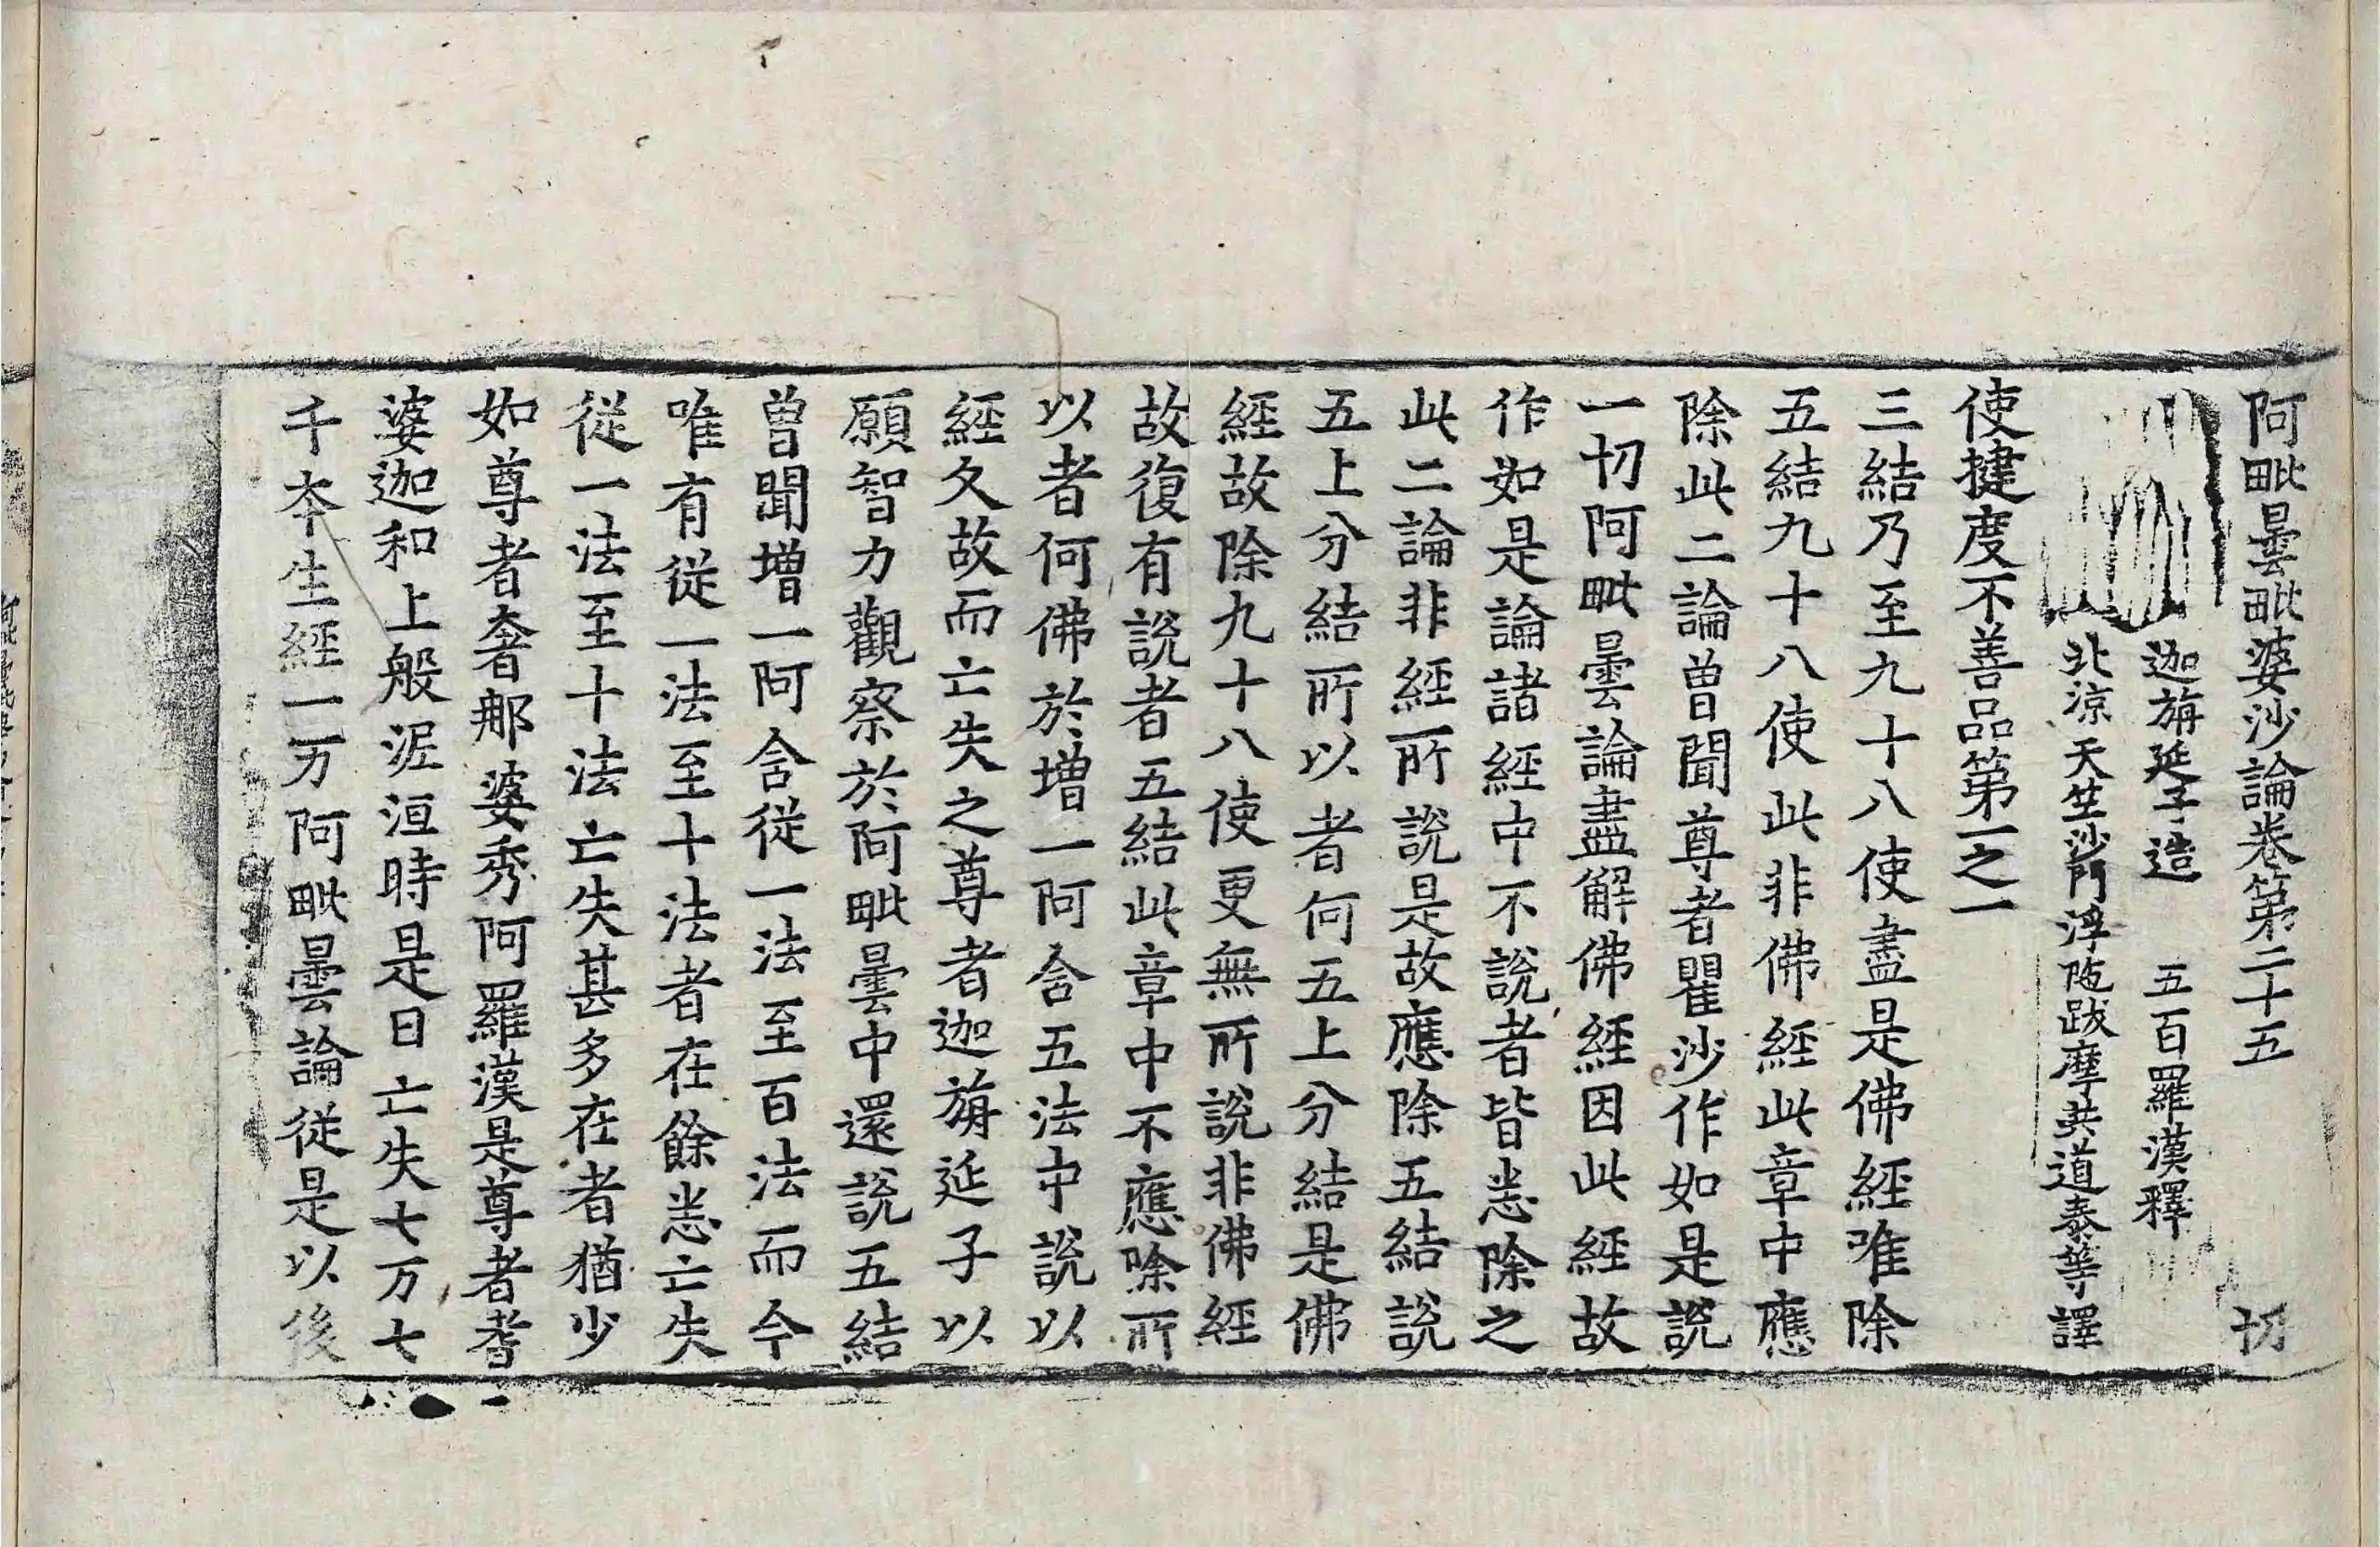 阿毗曇毗婆沙論卷第二十五 切
迦旃延子造 五百羅漢釋
北涼天竺沙門浮陁跋摩共道泰等譯
使揵度不善品第一之一
三結乃至九十八使盡是佛經唯除
五結九十八使此非佛經此章中應
除此二論曾聞尊者瞿沙作如是說
一切阿毗曇論盡解佛經因此經故
作如是論諸經中不說者皆悉除之
此二論非經所說是故應除五結說
五上分結所以者何五上分結是佛
經故除九十八使更無所說非佛經
故復有說者五結此章中不應除所
以者何佛於增一阿含五法中說以
經久故而亡失之尊者迦旃延子以
願智力觀察於阿毗曇中還說五結
曾聞增一阿含從一法至百法而今
唯有從一法至十法者在餘悉亡失
從一法至十法亡失甚多在者猶少
如尊者奢那婆秀阿羅漢是尊者耆
婆迦和上般涅洹時是日亡失七万七
千本生經一万阿毗曇論從是以後